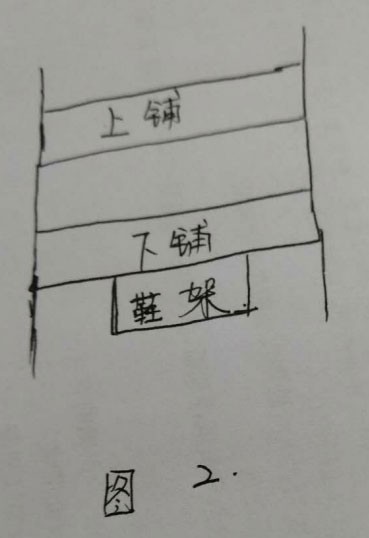 上铺
下铺
鞋架
图 2.